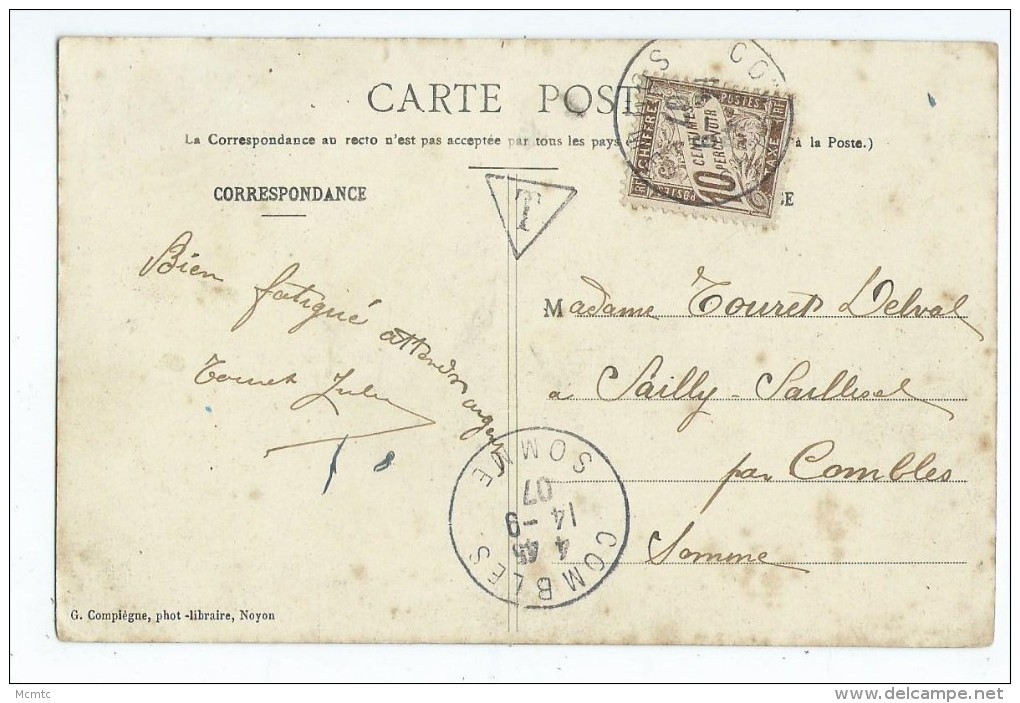 CARTE POST
La Correspondance au recto n'est pas acceptée par tous les pays à la Poste.)
CORRESPONDANCE
T
CHIFFRE POSTES TAXE
10 CENTIMES
PERCEVOIR
POSTES
SE
Bien fatigué attendre argent
Touret Jules
Madame Touret Delval
a Sailly-Saillisel
par Combles
Somme
COMBLES
4 45
14 -9
07
SOMME
G. Complègne, phot-libraire, Noyon
Mcmtc
http://www.delcampe.net